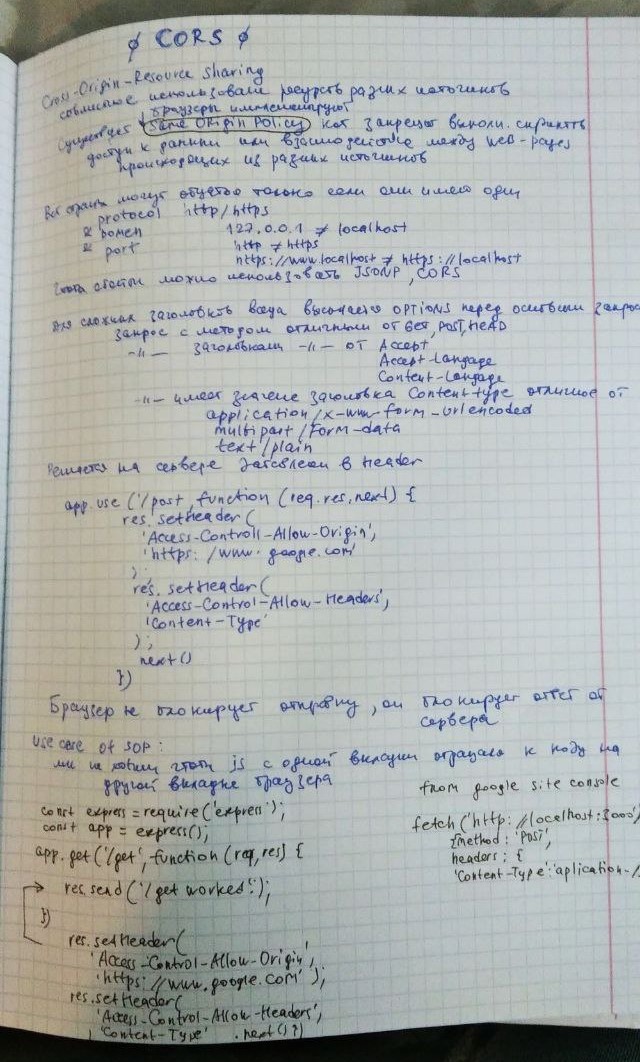 ∮ CORS ∮
Cross-Origin-Resource sharing
совместное использование ресурсов разных источников
браузеры имплементируют
Существует Same Origin Policy кот запрещает выполн. скриптов
доступ к данным или взаимодействие между web-pages
происходящих из разных источников
страницы могут общаться только если они имеют один
protocol http/https
& домен 127.0.0.1 ≠ localhost
& port http ≠ https
https://www.localhost ≠ https://localhost
Чтобы можно использовать JSONP, CORS
Для сложных заголовков всегда высылается OPTIONS перед основным запрос
запрос с методом отличным от GET, POST, HEAD
-//- заголовками -//- от Accept
Accept-Langage
Content-Langage
-//- имеет значение заголовка Content type отличное от
application/x-www-form-urlencoded
multipart/form-data
text/plain
Решается на сервере в header
app.use ('/post, function (req.res,next) {
res.setHeader(
'Access-Controll-Allow-Origin',
'https:/www.google.com'
);
res.setHeader(
'Access-Control-Allow-Headers',
'Content-Type'
);
next()
})
Браузер не блокирует отправку, он блокирует ответ от
сервера
use case of SOP:
мы не хотим чтобы js с одной вкладки к коду на
другой вкладке браузера
from google site console
const express=require('express');
const app = express();
fetch('http://localhost:3000/
{method: 'POST',
app.get('/get', function (req,res) {
headers: {
'Content-Type':'aplication-/
res.send('/get worked!');
})
res.setHeader(
'Access-Control-Allow-Origin',
'https://www.google.com');
res.setHeader(
'Access-Control-Allow-Headers',
'Content-Type' .next()?)